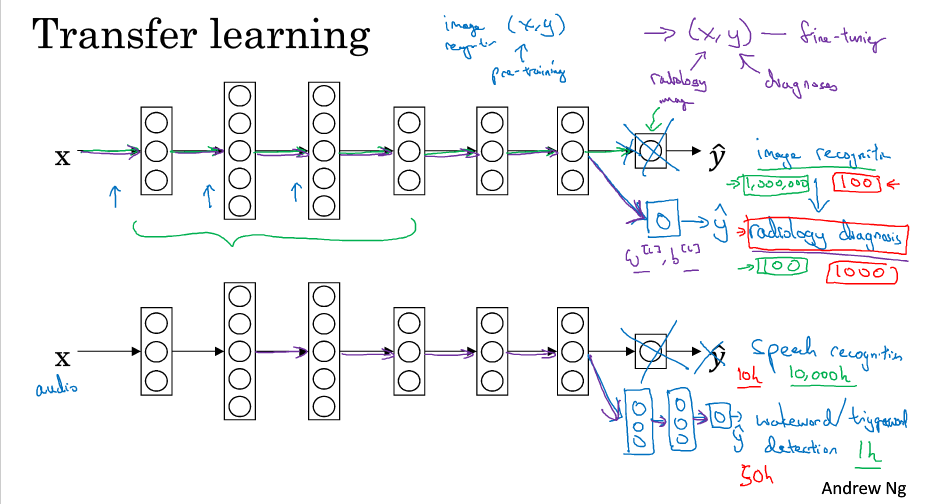 Transfer learning
image
(x,y)
pre-training
→ (x,y) — fine-tuning
radiology
diagnoses
x
ŷ
image recognition
→ 1,000,000
100 ←
ŷ
radiology diagnosis
w[L], b[L]
→ 100
1000
x
audio
ŷ
speech recognition
10h
10,000h
ŷ
wakeword/triggerword
detection
1h
50h
Andrew Ng